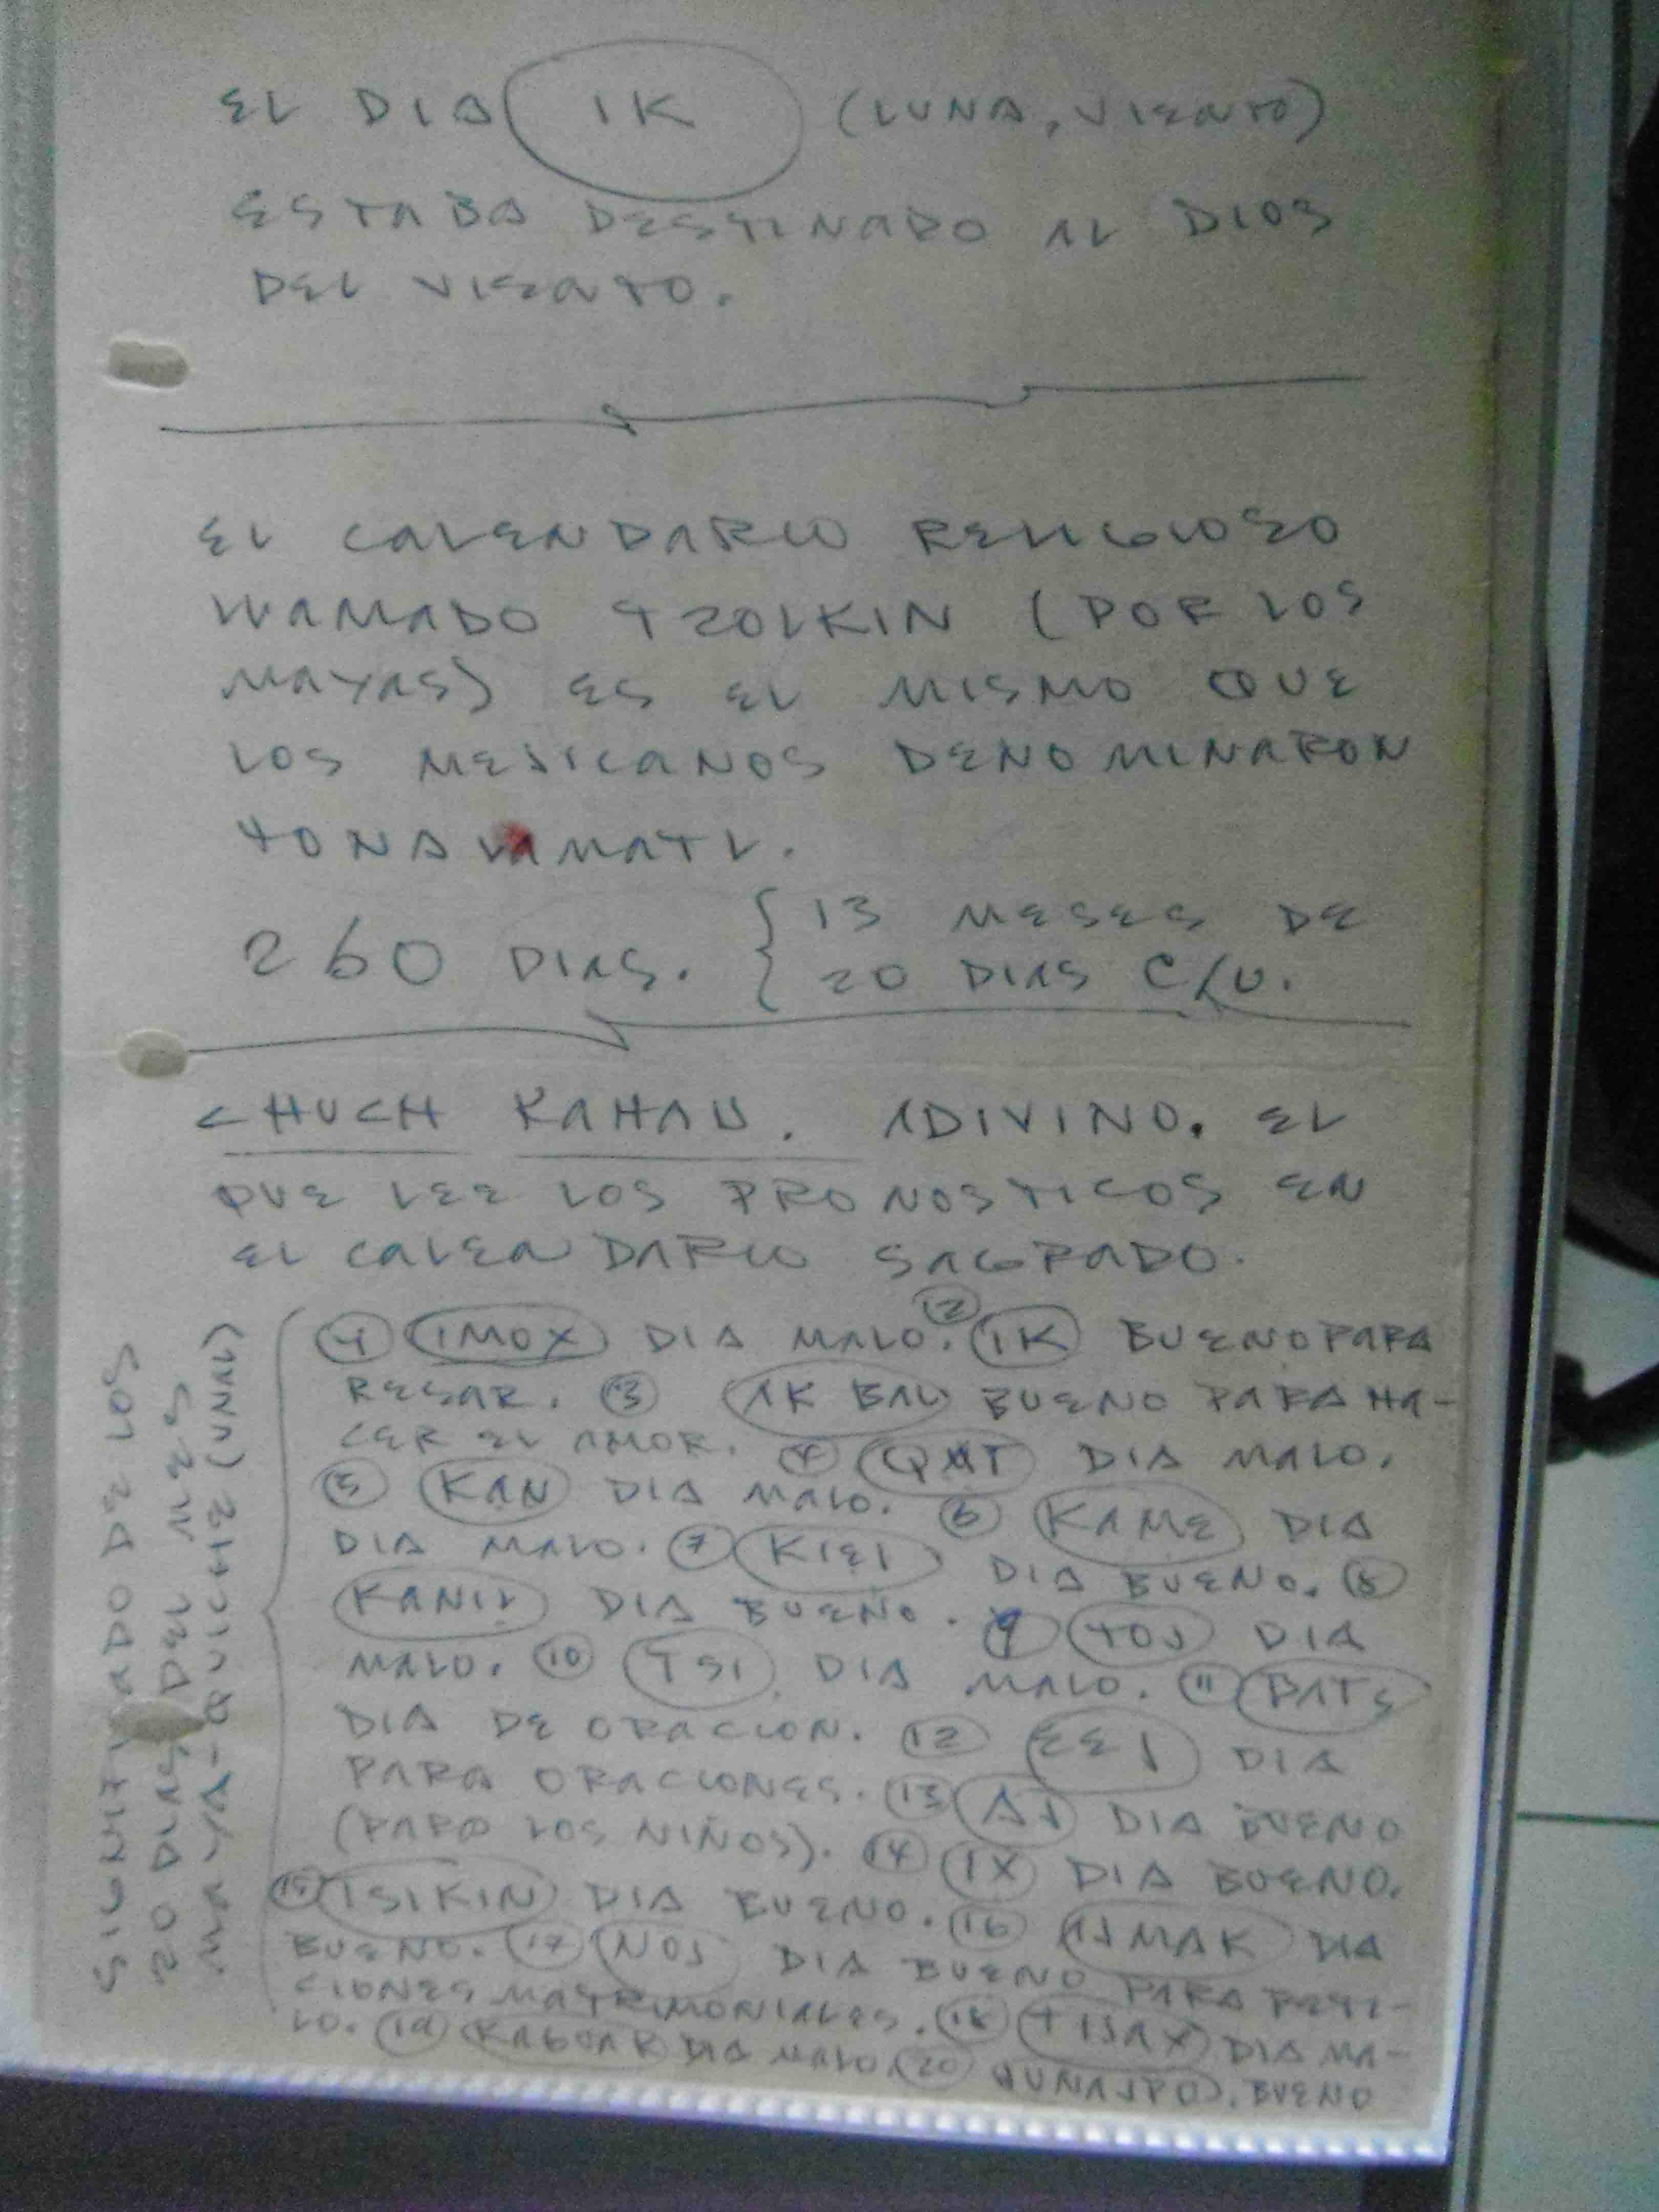 EL DIA IK (LUNA, VIENTO)
ESTABA DESTINADO AL DIOS
DEL VIENTO.
EL CALENDARIO RELIGIOSO
LLAMADO TZOLKIN (POR LOS
MAYAS) ES EL MISMO QUE
LOS MEJICANOS DENOMINARON
TONALAMATL.
260 DIAS. { 13 MESES DE
20 DIAS C/U.
CHUCH KAHAU. ADIVINO. EL
QUE LEE LOS PRONOSTICOS EN
EL CALENDARIO SAGRADO.
SIGNIFICADO DE LOS
20 DIAS DEL MES
MAYA-QUICHE (UNAL)
1 IMOX DIA MALO. 2 IK BUENO PARA
RESAR. 3 AK BAL BUENO PARA HA-
CER EL AMOR. 4 QAT DIA MALO.
5 KAN DIA MALO. 6 KAME DIA
DIA MALO. 7 KIEJ DIA BUENO. 8
KANIL DIA BUENO. 9 TOJ DIA
MALO. 10 TSI DIA MALO. 11 BATS
DIA DE ORACION. 12 EEJ DIA
PARA ORACIONES. 13 AJ DIA BUENO
(PARA LOS NIÑOS). 14 IX DIA BUENO.
15 TSIKIN DIA BUENO. 16 AJMAK DIA
BUENO. 17 NOJ DIA BUENO PARA PETI-
CIONES MATRIMONIALES. 18 TIJAX DIA MA-
LO. 19 DIA MALO 20 JUNAJPO. BUENO